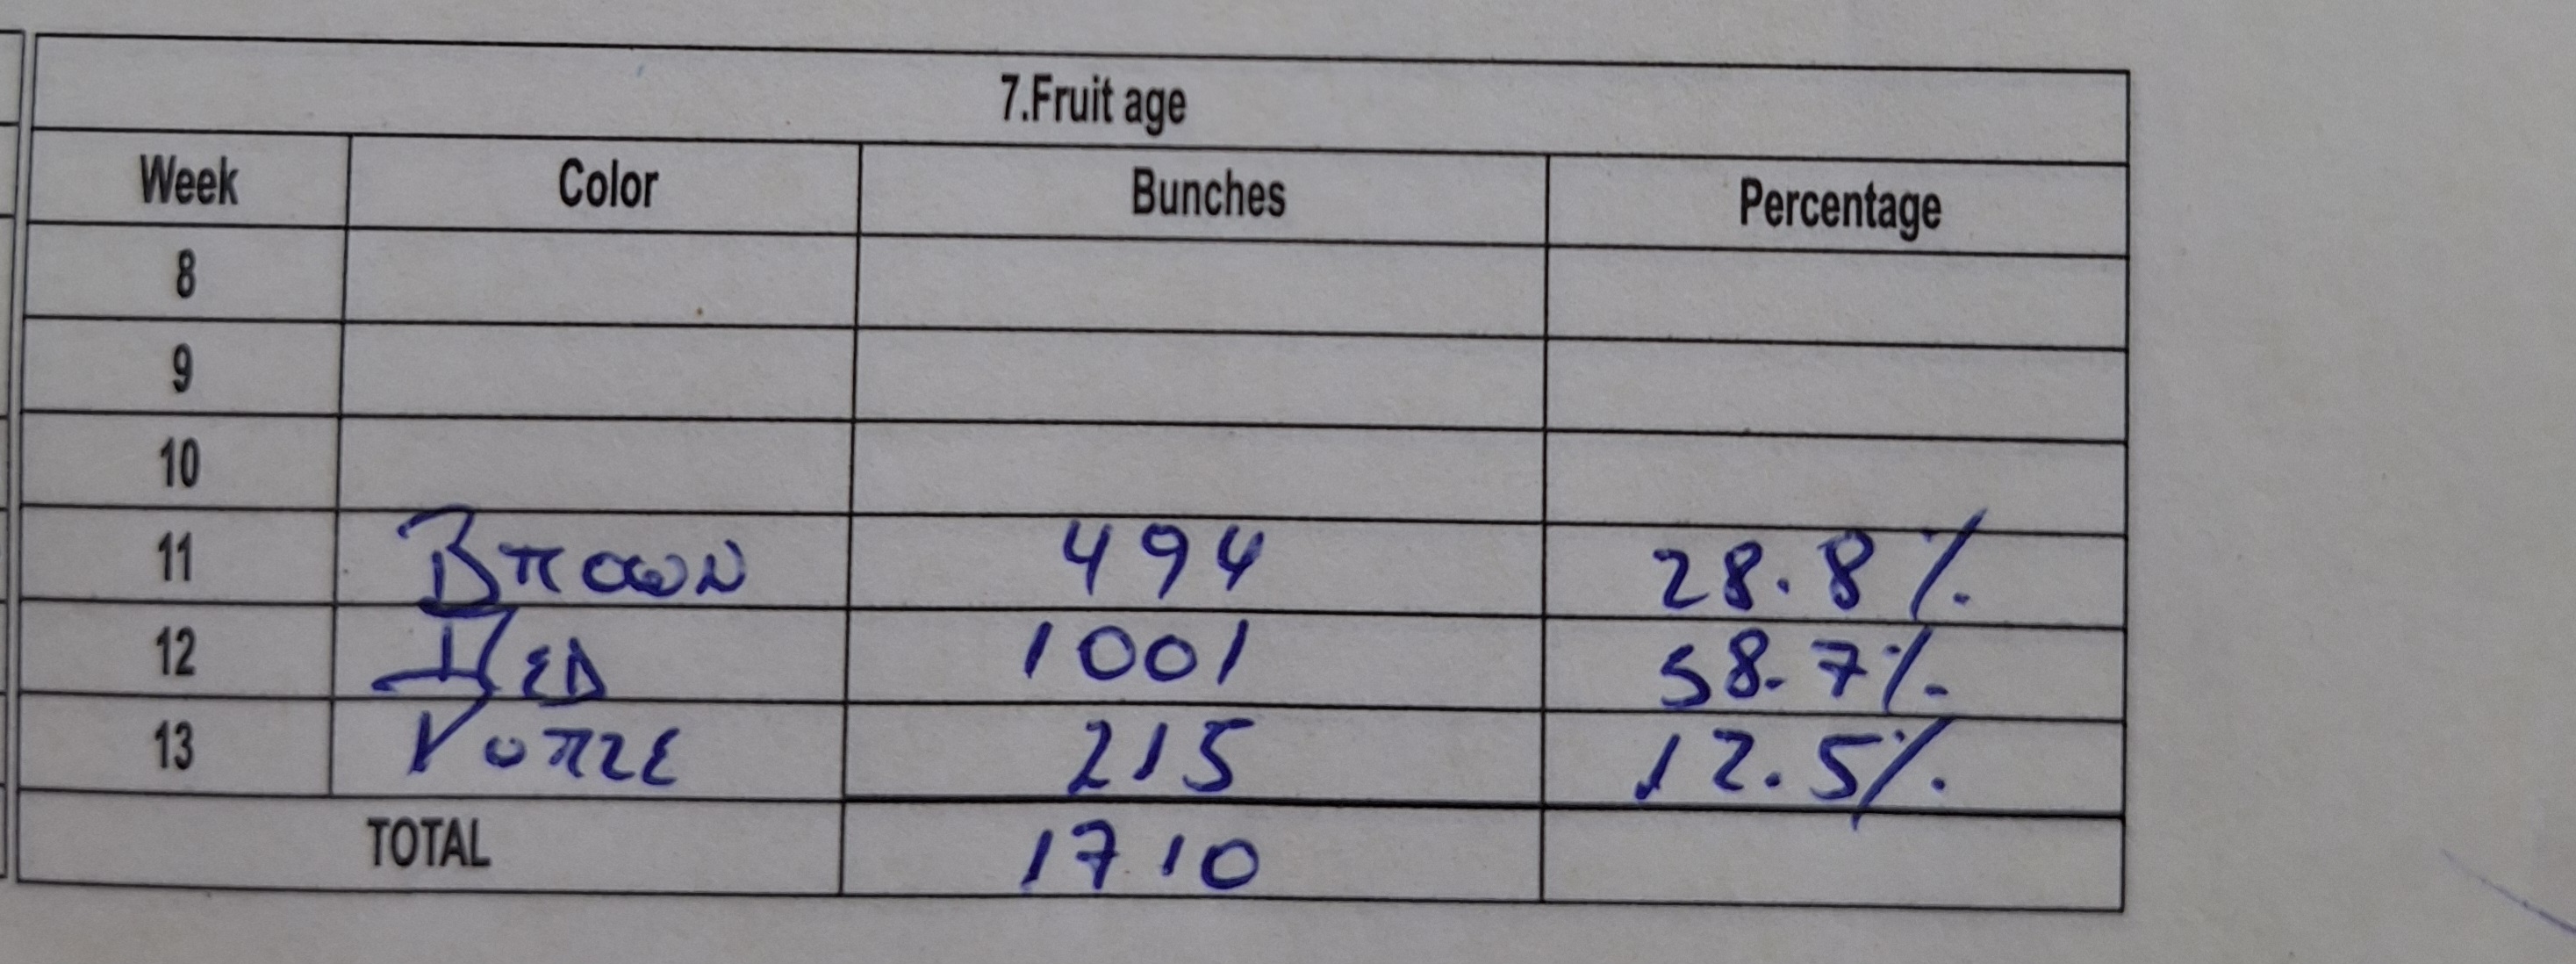 7.Fruit age
Week Color Bunches Percentage
8
9
10
11 Brown 494 28.8%
12 Red 1001 58.7%
13 215 12.5%
TOTAL 1710